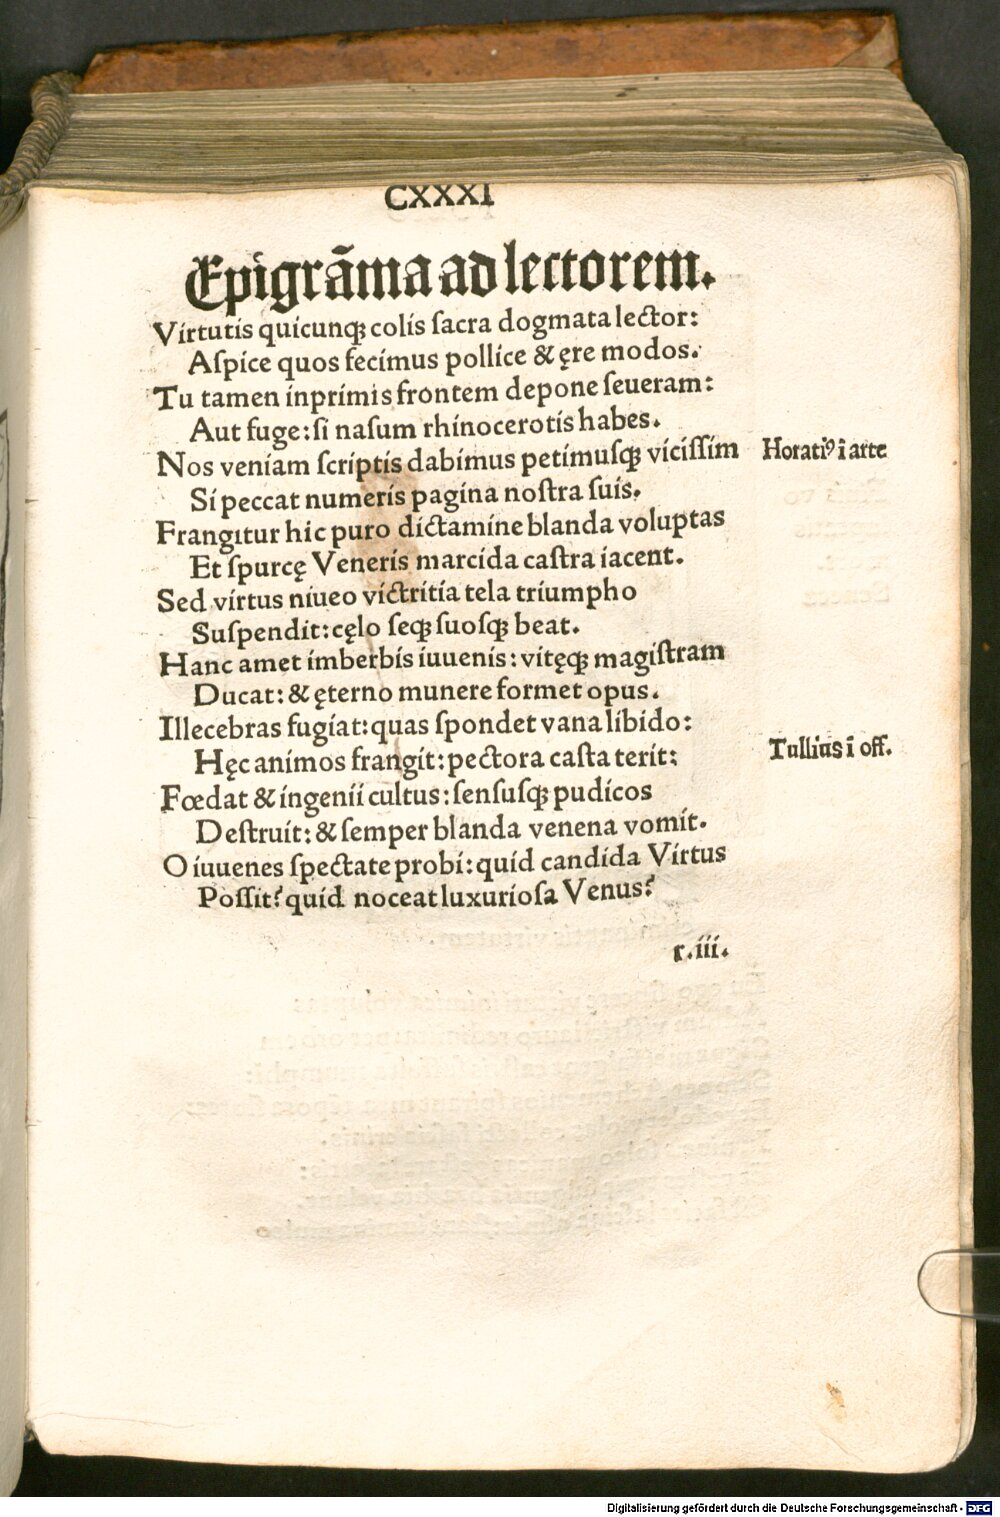 CXXXI
Epigrãma ad lectorem.
Virtutis quicunqꝫ colis ſacra dogmata lector:
Aſpice quos fecimus pollice & ęre modos.
Tu tamen inprimis frontem depone ſeueram:
Aut fuge: ſi naſum rhinocerotis habes.
Nos veniam ſcriptis dabimus petimuſqꝫ viciſſim Horatiꝰ ĩ arte
Si peccat numeris pagina noſtra ſuis.
Frangitur hic puro dictamine blanda voluptas
Et ſpurcę Veneris marcida caſtra iacent.
Sed virtus niueo victritia tela triumpho
Suſpendit: cęlo ſeqꝫ ſuoſqꝫ beat.
Hanc amet imberbis iuuenis: vitęqꝫ magiſtram
Ducat: & ęterno munere formet opus.
Illecebras fugiat: quas ſpondet vana libido:
Hęc animos frangit: pectora caſta terit: Tullius ĩ off.
Fœdat & ingenii cultus: ſenſuſqꝫ pudicos
Deſtruit: & ſemper blanda venena vomit.
O iuuenes ſpectate probi: quid candida Virtus
Poſſit? quid noceat luxurioſa Venus?
r.iii.
Digitalisierung gefördert durch die Deutsche Forschungsgemeinschaft - DFG